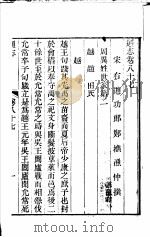 通志卷八十七
宋右迪功郎鄭樵漁仲撰
周異姓世家
越 趙 田氏
越
越王句踐其先禹之苗裔而夏后帝少康之庶子也封
於會稽以奉守禹祀文身斷髮披草萊而邑焉後二
十餘世至於允常允常之時與吳王闔廬戰而相怨伐
允常卒子句踐立是為越王元年吳王闔廬聞允常死